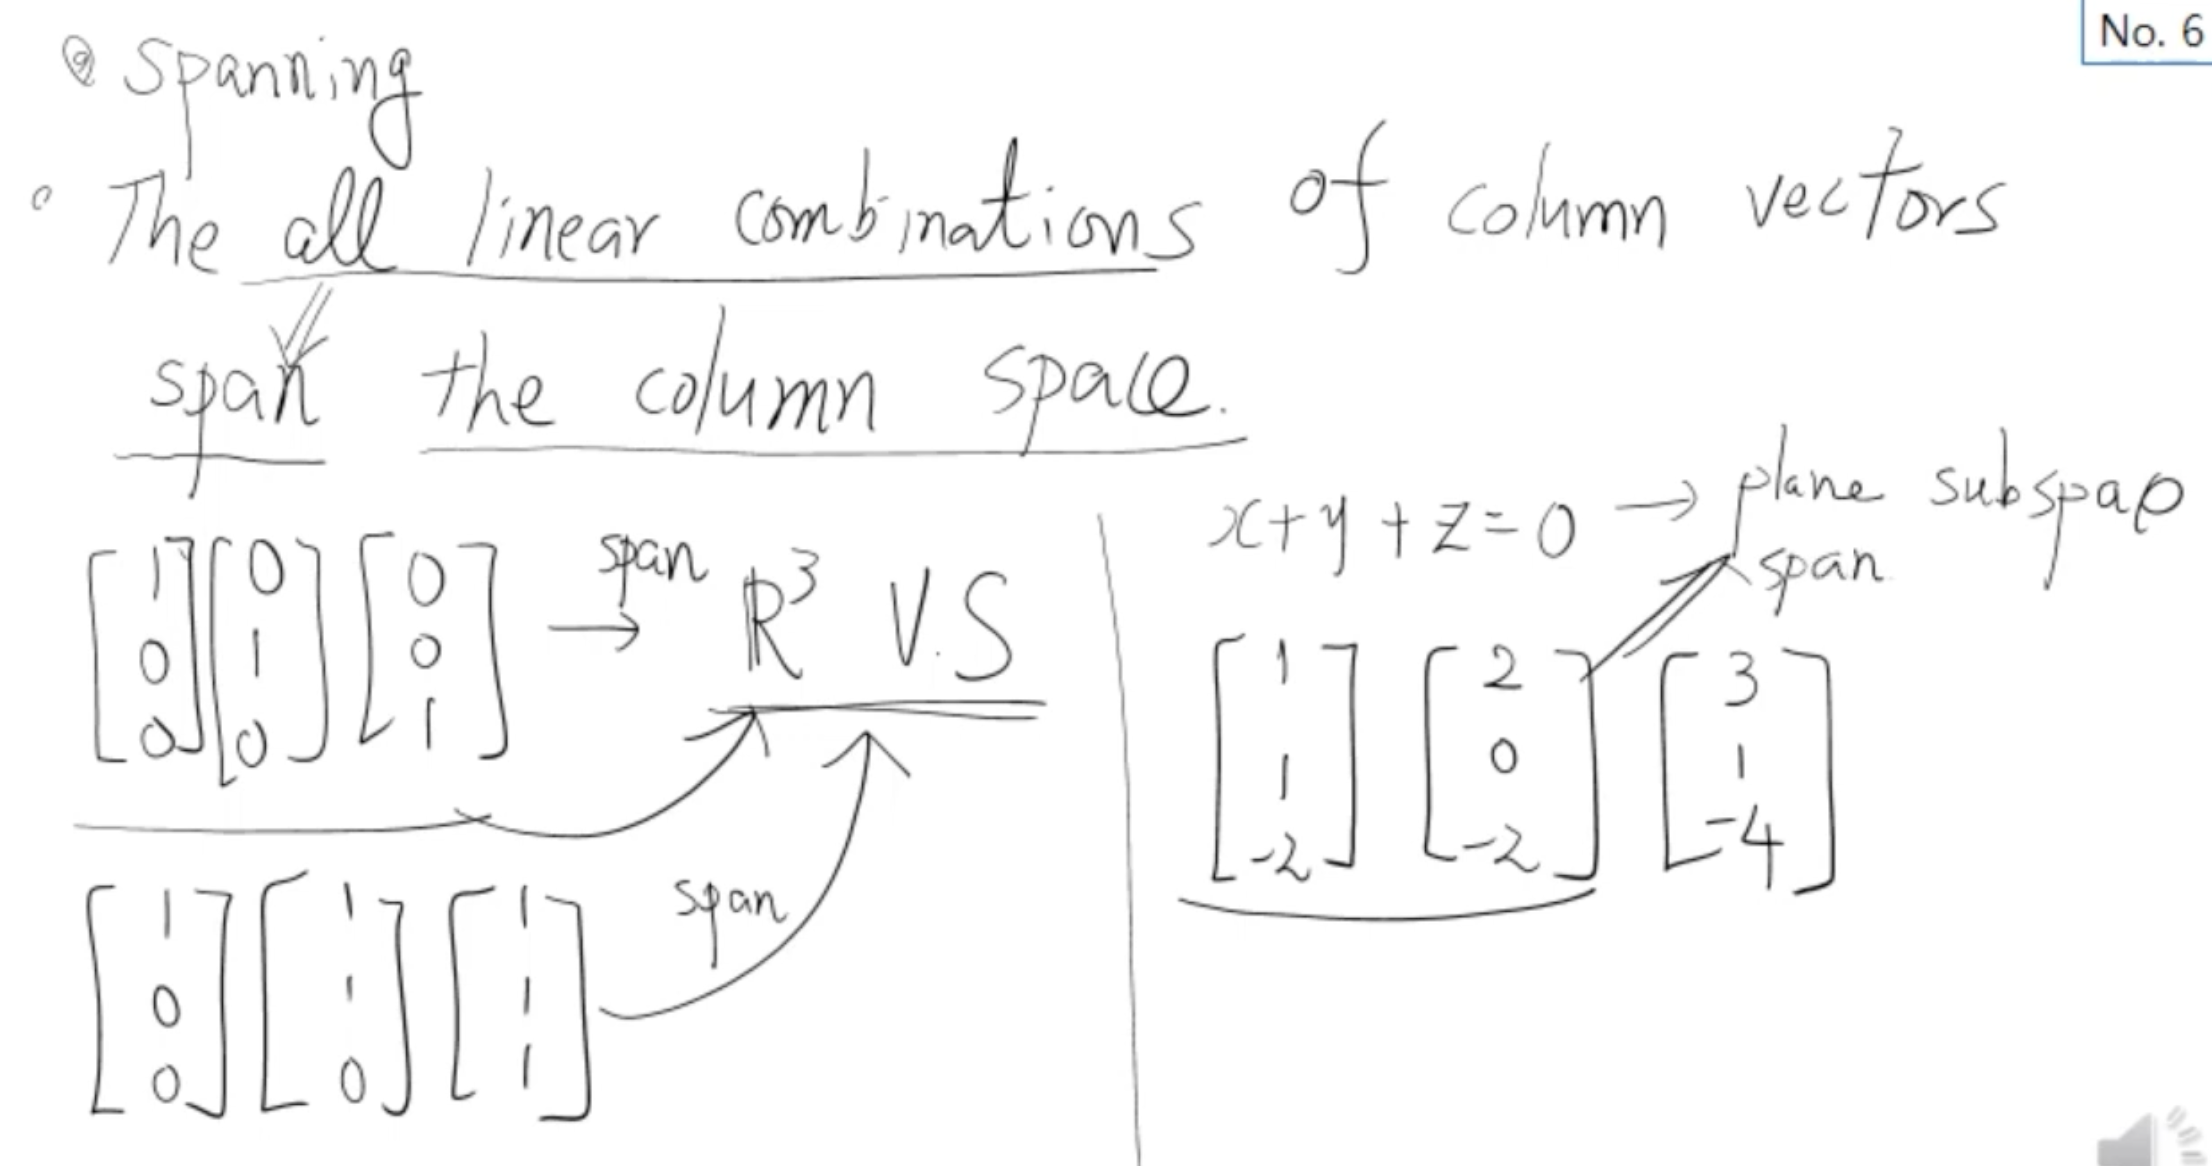 No. 6
@ Spanning
• The all linear combinations of column vectors
span the column space.
[1 0 0] [0 1 0] [0 0 1] → span R³ V.S
[1 0 0] [1 1 0] [1 1 1] span
x+y+z=0 → plane subspace
span
[1 1 -2] [2 0 -2] [3 1 -4]